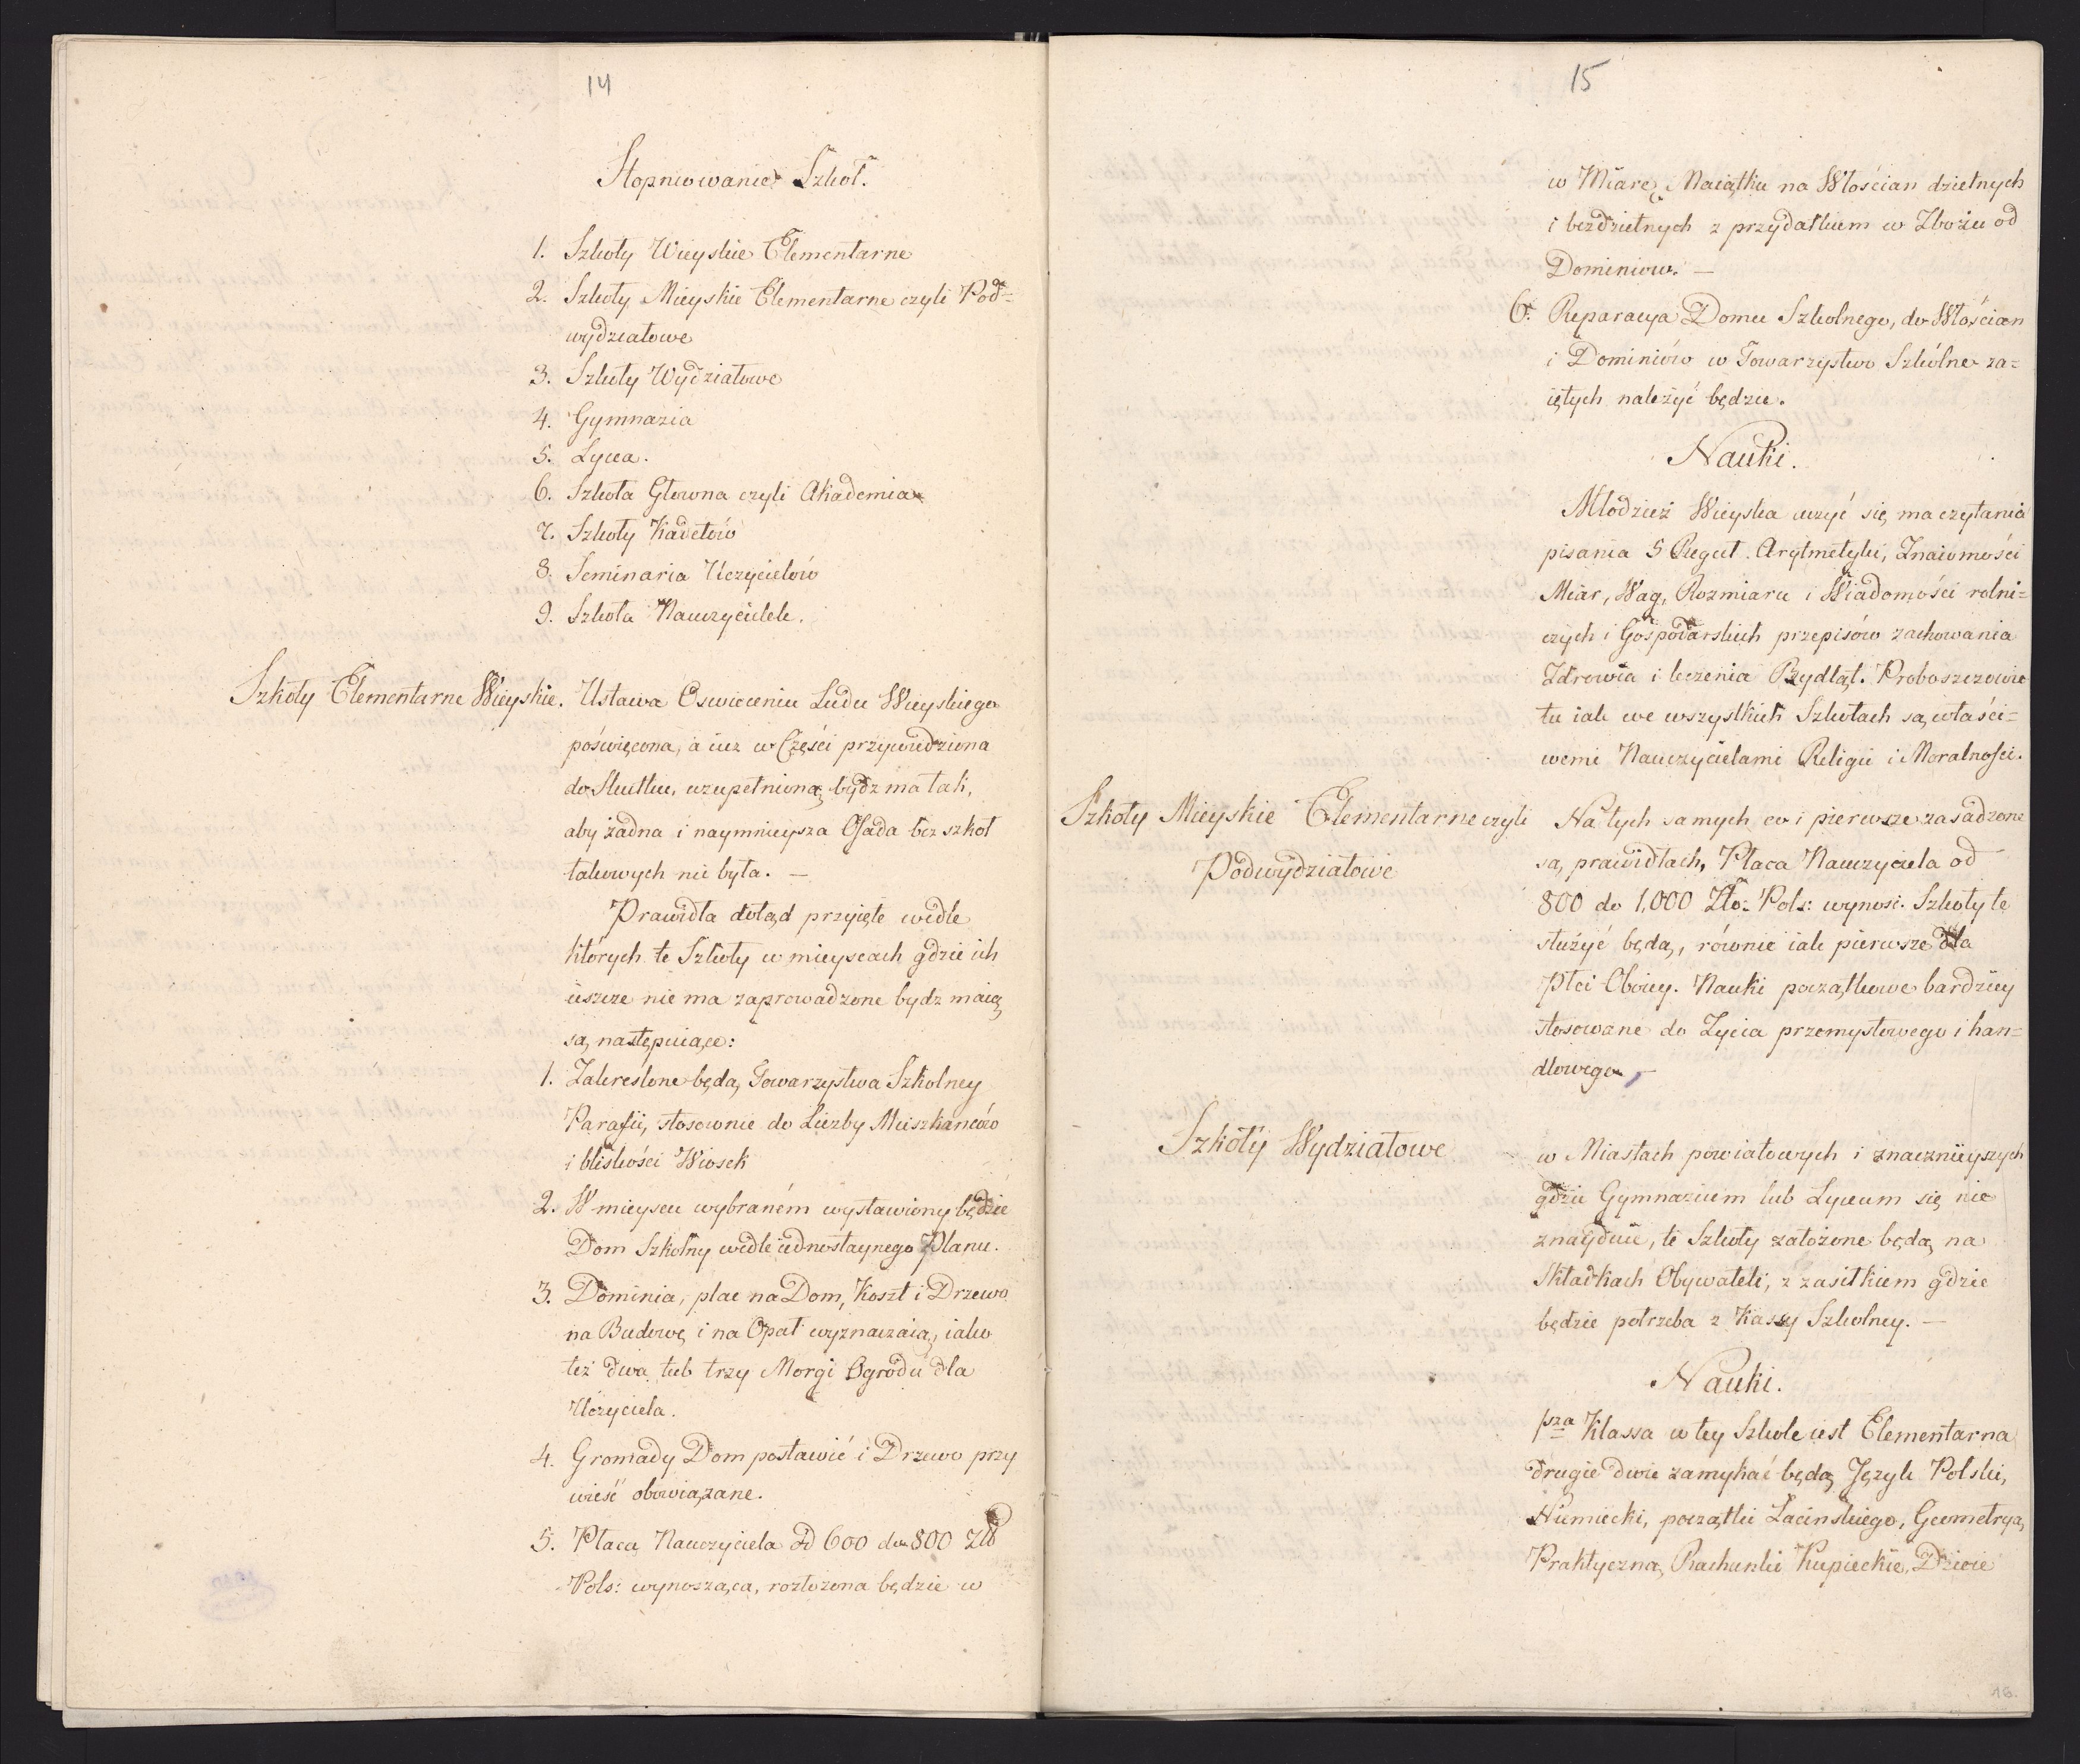 14
Stopniowanie Szkoł.
1. Szkoły Wieyskie Elementarne
2. Szkoły Mieyskie Elementarne czyli Pod=
wydziałowe
3. Szkoły Wydziałowe
4. Gymnazia
5. Lycea.
6. Szkoła Głowna czyli Akademia
7. Szkoły Kadetów
8. Seminaria Uczycielów
9. Szkoła Nauczycielek.
Szkoły Elementarne Wieyskie.
Ustawa Oswieceniu Ludu Wieyskiego
poświęcona, a iuz w Części przywiedziona
do Skutku, uzupełnioną bydz ma tak,
aby żadna i naymnieysza Osada bez szkoł
takowych nie była. —
Prawidła dotąd przyięte wedle
których te Szkoły w mieyscach gdzie ich
ieszcze nie ma zaprowadzone bydz maią
są następuiące:
1. Zakreslone będą Towarzystwa Szkolney
Parafii, stosownie do Liczby Mieszkanców
i bliskości Wiosek
2. W mieyscu wybraném wystawiony będzie
Dom Szkolny wedle iednostaynego Planu.
3. Dominia, plac na Dom, Koszt i Drzewo
na Budowę i na Opał wyznaczaią, iako
też dwa lub trzy Morgi Ogrodu dla
Uczyciela.
4. Gromady Dom postawić i Drzewo przy
wieść obowiązane.
5. Płaca Nauczyciela od 600 do 800 Zło
Pols: wynosząca, rozłożona będzie w
15
w Miarę Maiątku na Włościan dzielnych
i bezdzielnych z przydatkiem w Zbożu od
Dominiow. —
6. Reparacya Domu Szkolnego, do Włościan
i Dominiów w Towarzystwo Szkólne za=
iętych należyć będzie.
Nauki.
Młodzież Wieyska uczyć się ma czytania
pisania 5 Reguł Arytmetyki, Znaiomości
Miar, Wag, Rozmiaru i Wiadomości rolni=
czych i Gospodarskich przepisów zachowania
Zdrowia i leczenia Bydląt. Proboszczowie
tu iak we wszystkich Szkołach są właści=
wemi Nauczycielami Religii i Moralności.
Szkoły Mieyskie Elementarne czyli
Podwydziałowe
Na tych samych co i pierwsze zasadzone
są prawidłach, Płaca Nauczyciela od
800 do 1,000 Zło: Pols: wynosi. Szkoły te
służyć będą, równie iak pierwsze dla
Płci Oboiey. Nauki początkowe bardziey
stosowane do Życia przemysłowego i han=
dlowego —
Szkoły Wydziałowe
w Miastach powiatowych i znacznieyszych
gdzie Gymnazium lub Lyceum się nie
znayduie, te Szkoły założone będą na
Składkach Obywateli, z zasiłkiem gdzie
będzie potrzeba z Kassy Szkolney. —
Nauki.
1sza Klassa w tey Szkole iest Elementarna
drugie dwie zamykać będą Język Polski,
Niemiecki, początki Łacinskiego, Geometryą
Praktyczną, Rachunki Kupieckie, Dzieie
16.